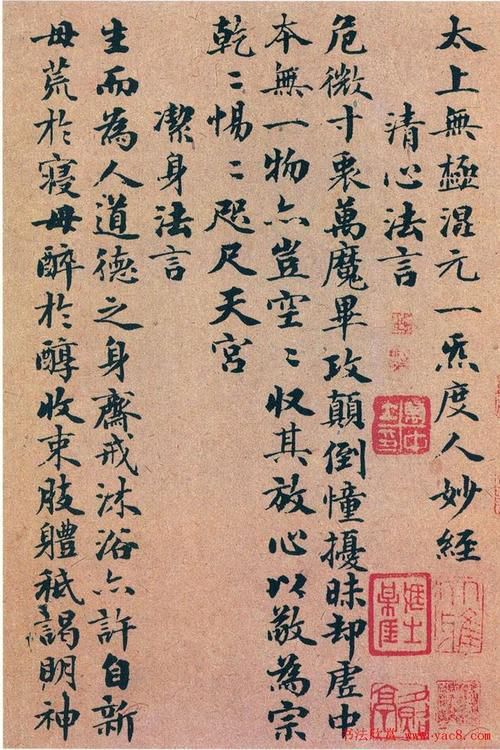 太上無極混元一炁度人妙經
清心法言
危微寸衷萬魔畢攻顛倒憧擾昧却虛中
本無一物亦豈空〻收其放心以敬為宗
乾〻惕〻咫尺天宮
潔身法言
生而為人道德之身齋戒沐浴亦許自新
毋荒於寢毋醉於醇收束肢體祗謁明神
书法欣赏 www.yac8.com